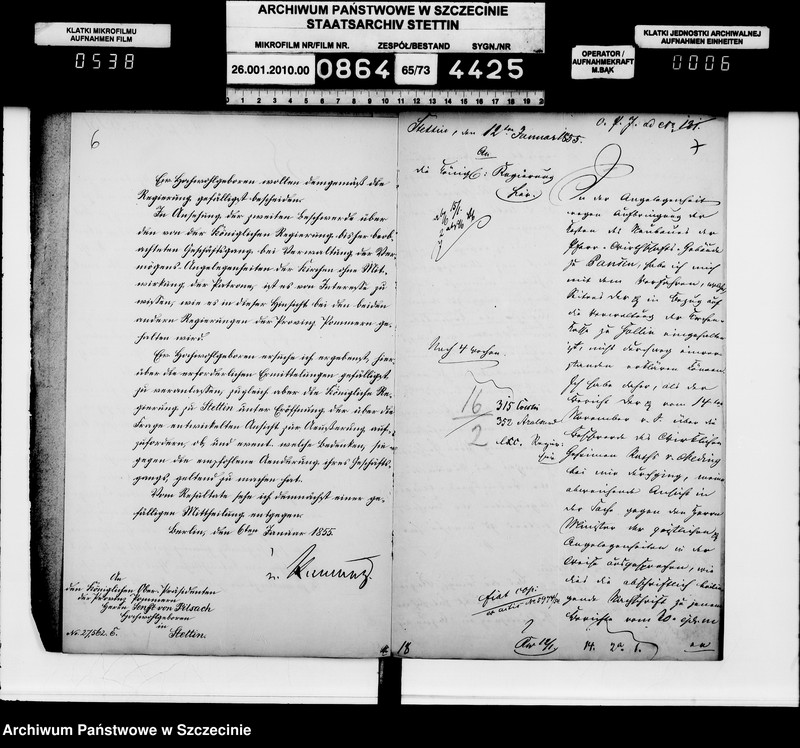 KLATKI MIKROFILMU
AUFNAHMEN FILM
0538
ARCHIWUM PAŃSTWOWE W SZCZECINIE
STAATSARCHIV STETTIN
MIKROFILM NR/FILM NR. ZESPÓŁ/BESTAND SYGN./NR
26.001.2010.00 0864 65/73 4425
OPERATOR/
AUFNAHMEKRAFT
M.BĄK
KLATKI JEDNOSTKI ARCHIWALNEJ
AUFNAHMEN EINHEITEN
0006
0 1 2 3 4 5 6 7 8 9 10 11 12 13 14 15 16 17 18 19 20
6
Ew. Hochwohlgeboren wollen demgemäß die
Regierung gefälligst bescheiden.
In Ansehung der zweiten Beschwerde über
den von der Königlichen Regierung bisher beob-
achteten Geschäftsgang bei Verwaltung der Ver-
mögens-Angelegenheiten der Kirchen ohne Mit-
wirkung der Patrone, ist es von Interesse zu
wissen, wie es in dieser Hinsicht bei den beiden
andern Regierungen der Provinz Pommern ge-
halten wird.
Ew. Hochwohlgeboren ersuche ich ergebenst, hier-
über die erforderlichen Ermittelungen gefälligst
zu veranlassen, zugleich aber die Königliche Re-
gierung zu Stettin unter Eröffnung der über die
Frage entwickelten Ansicht zur Aeußerung auf-
zufordern, ob und event. welche Bedenken, sie
gegen die empfohlene Aenderung ihres Geschäfts-
gangs, geltend zu machen hat.
Vom Resultate sehe ich demnächst einer ge-
fälligen Mittheilung entgegen.
Berlin, den 6ten Januar 1855.
v. Raumer
An
den Königlichen Ober-Präsidenten
der Provinz Pommern
Herrn Senfft von Pilsach
Hochwohlgeboren
in
Stettin.
No. 27,562. E.
Stettin, den 12ten Januar 1855.
7
An
die Königl. Regierung
hier.
Nach 4 Wochen.
16
2
315 Coeslin
352 Stralsund
In der Angelegenheit
wegen Aufbringung der
Kosten des Neubaues der
Pfarr-Wirthschafts-Gebäude
zu Pansin, habe ich mich
mit dem Verfahren,
Seitens der in Bezug auf
die Verwaltung der Kirchen-
Kasse zu eingehalten
ist, nicht durchweg einver-
standen erklären können.
Ich habe daher, als der
Bericht der vom 14ten
November v. J. über die
Beschwerde des Wirklichen
Geheimen Raths v.
bei mir durchging, meine
abweichende Ansicht in
der Sache gegen den Herrn
Minister der geistlichen
Angelegenheiten in der
Weise ausgesprochen, wie
dies die abschriftlich beilie-
gende Nachschrift zu jenem
Berichte vom 20.
18
Archiwum Państwowe w Szczecinie